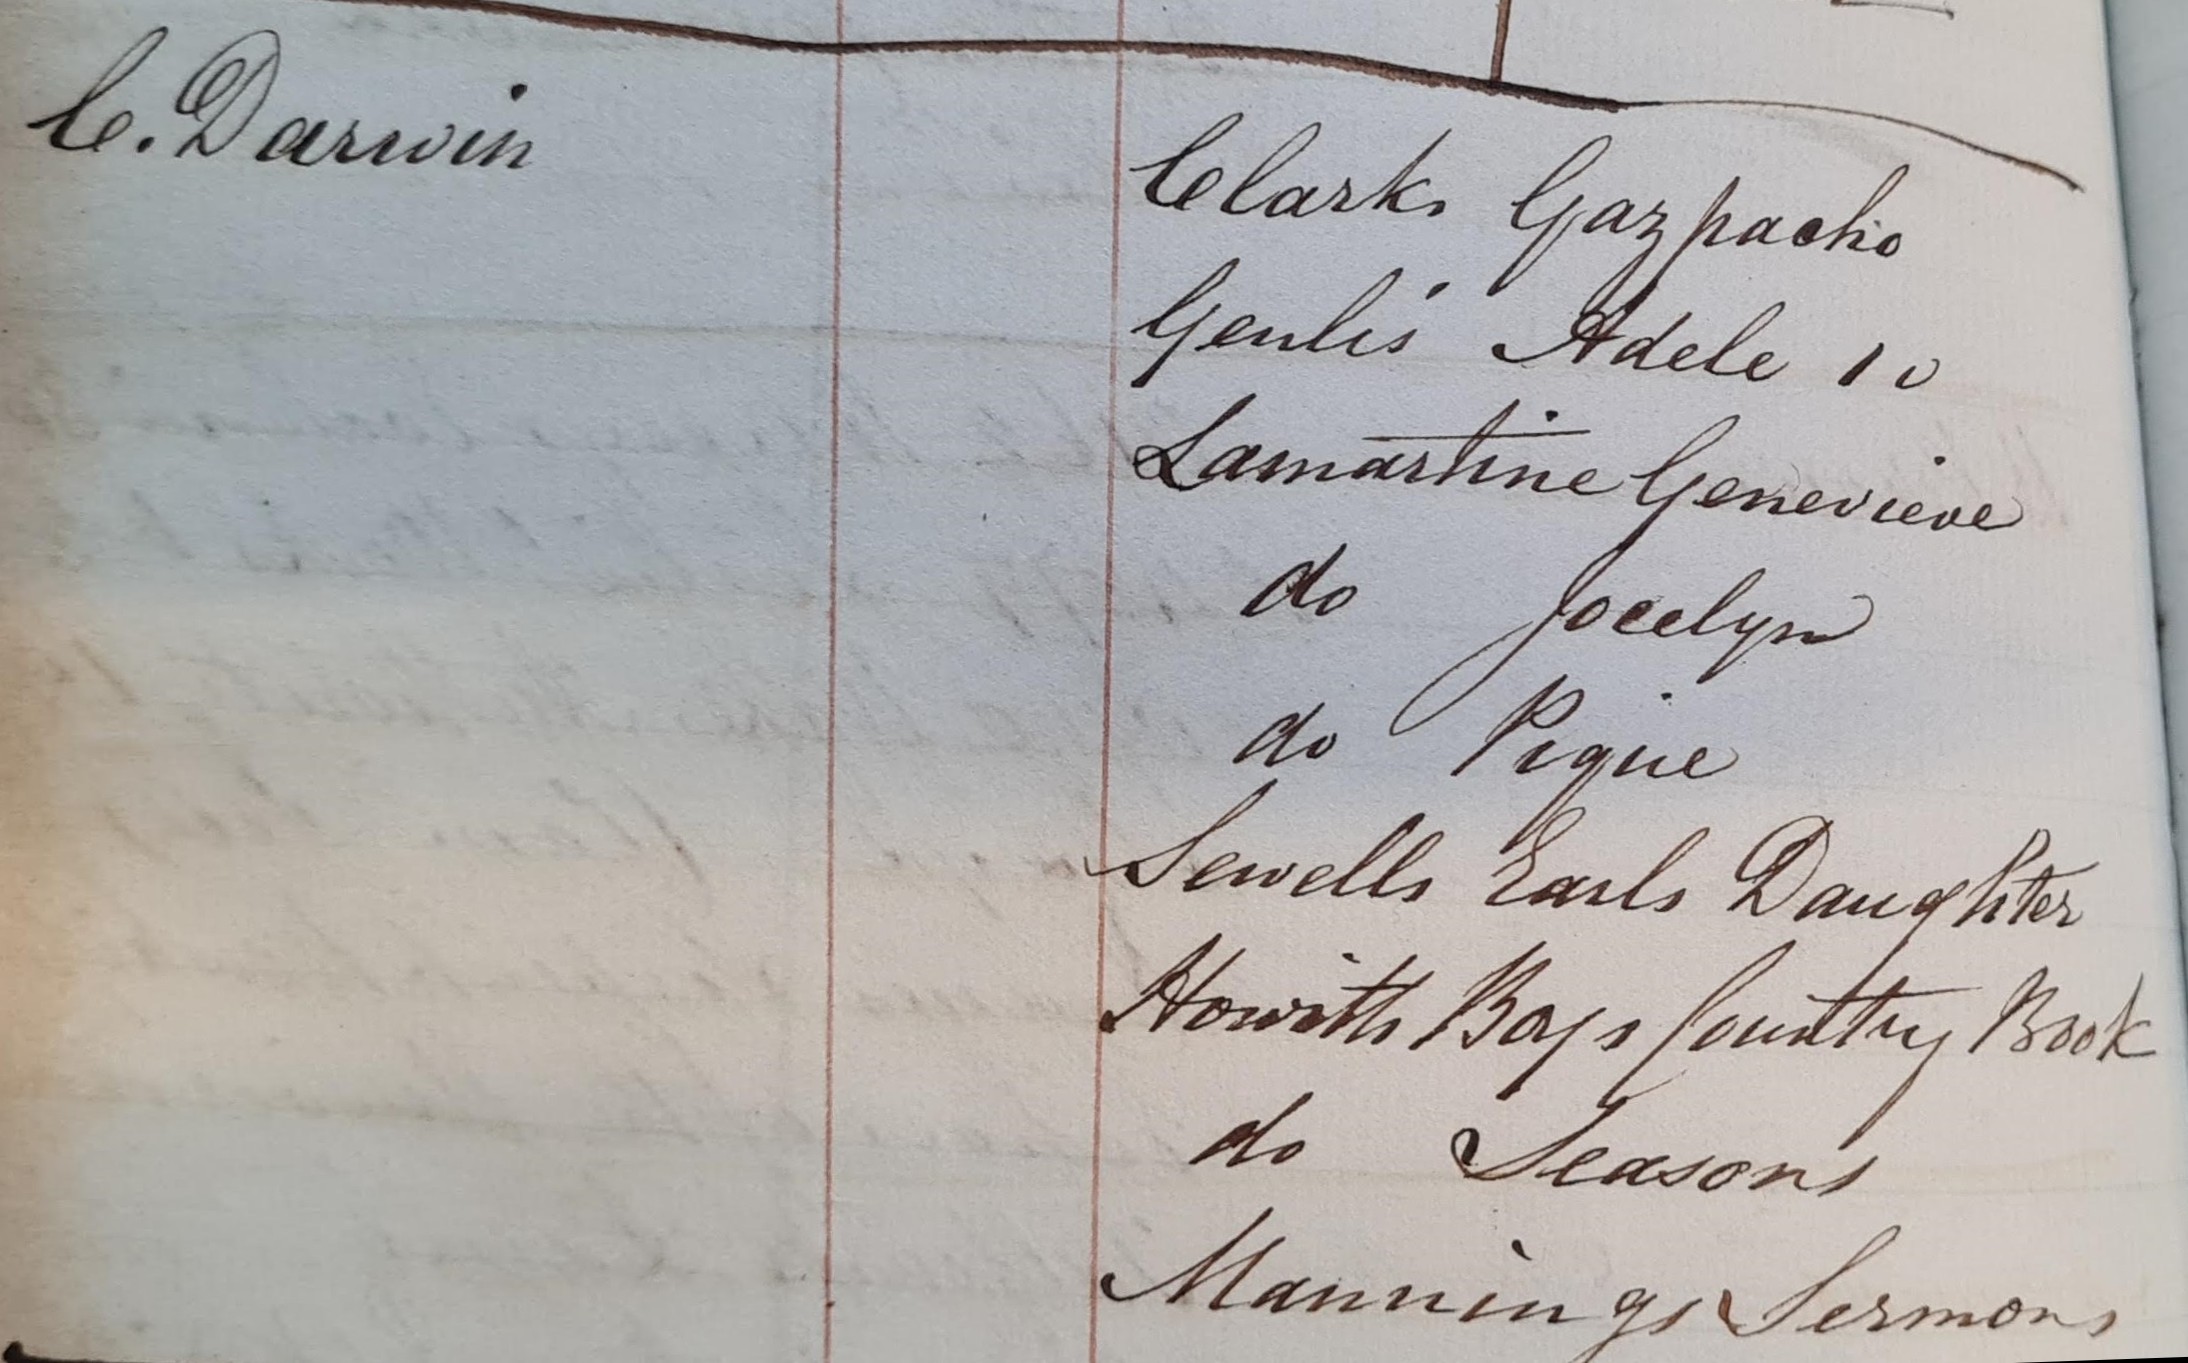 C. Darwin
Clarks Gazpacho
Genlis Adele 10
Lamartine Genevieve
do Jocelyn
do Pique
Sewells Earls Daughter
Howitts Boys Country Book
do Seasons
Mannings Sermons